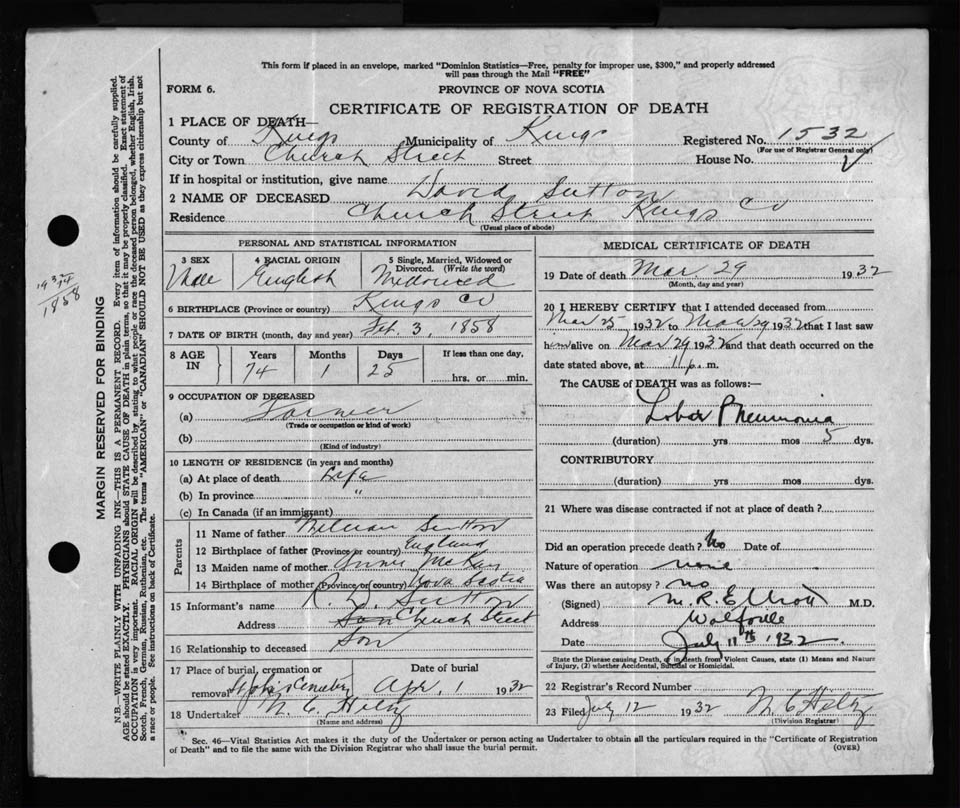 This form if placed in an envelope, marked "Dominion Statistics—Free, penalty for improper use, $300," and properly addressed
will pass through the Mail "FREE"
FORM 6.
PROVINCE OF NOVA SCOTIA
CERTIFICATE OF REGISTRATION OF DEATH
1 PLACE OF DEATH
County of Kings Municipality of Kings Registered No. 1532
(For use of Registrar General only)
City or Town Church Street Street House No.
If in hospital or institution, give name
2 NAME OF DECEASED David Sutton
Residence Church Street Kings Co
(Usual place of abode)
PERSONAL AND STATISTICAL INFORMATION
3 SEX 4 RACIAL ORIGIN 5 Single, Married, Widowed or
Divorced. (Write the word)
Male English Widowed
6 BIRTHPLACE (Province or country) Kings Co
7 DATE OF BIRTH (month, day and year) Feb. 3, 1858
8 AGE IN Years Months Days If less than one day,
74 1 25 hrs. or min.
9 OCCUPATION OF DECEASED
(a) Farmer
(Trade or occupation or kind of work)
(b)
(Kind of industry)
10 LENGTH OF RESIDENCE (in years and months)
(a) At place of death Life
(b) In province "
(c) In Canada (if an immigrant)
Parents
11 Name of father Sutton
12 Birthplace of father (Province or country) England
13 Maiden name of mother Annie
14 Birthplace of mother (Province or country) Nova Scotia
15 Informant's name Sutton
Address Son Church Street
16 Relationship to deceased Son
17 Place of burial, cremation or Date of burial
removal Cemetery Apr. 1 1932
18 Undertaker N. C. Hiltz
(Name and address)
MEDICAL CERTIFICATE OF DEATH
19 Date of death Mar. 29 1932
(Month, day and year)
20 I HEREBY CERTIFY that I attended deceased from
Mar 25 1932 to Mar 29 1932 that I last saw
him alive on Mar 29 1932 and that death occurred on the
date stated above, at 11 p. m.
The CAUSE of DEATH was as follows:—
Lobar Pneumonia
(duration) yrs mos 5 dys.
CONTRIBUTORY
(duration) yrs. mos. dys.
21 Where was disease contracted if not at place of death?
Did an operation precede death? No Date of
Nature of operation none
Was there an autopsy? no
(Signed) M. R. Elliott M.D.
Address Wolfville
Date July 11th 1932
State the Disease causing Death, or in death from Violent Causes, state (1) Means and Nature
of Injury, (2) whether Accidental, Suicidal or Homicidal.
22 Registrar's Record Number
23 Filed July 12 1932 N. C. Hiltz
(Division Registrar)
Sec. 46—Vital Statistics Act makes it the duty of the Undertaker or person acting as Undertaker to obtain all the particulars required in the "Certificate of Registration
of Death" and to file the same with the Division Registrar who shall issue the burial permit.
(OVER)
MARGIN RESERVED FOR BINDING
N.B.—WRITE PLAINLY WITH UNFADING INK—THIS IS A PERMANENT RECORD. Every item of information should be carefully supplied.
AGE should be stated EXACTLY. PHYSICIANS should STATE CAUSE OF DEATH in plain terms, so that it may be properly classified. Exact statement of
OCCUPATION is very important. RACIAL ORIGIN will be described by stating to what people or race the deceased person belonged, whether English, Irish,
Scotch, French, German, Russian, Ruthenian, etc. The terms "AMERICAN" or "CANADIAN" SHOULD NOT BE USED as they express citizenship but not
a race or people. See instructions on back of Certificate.
1858